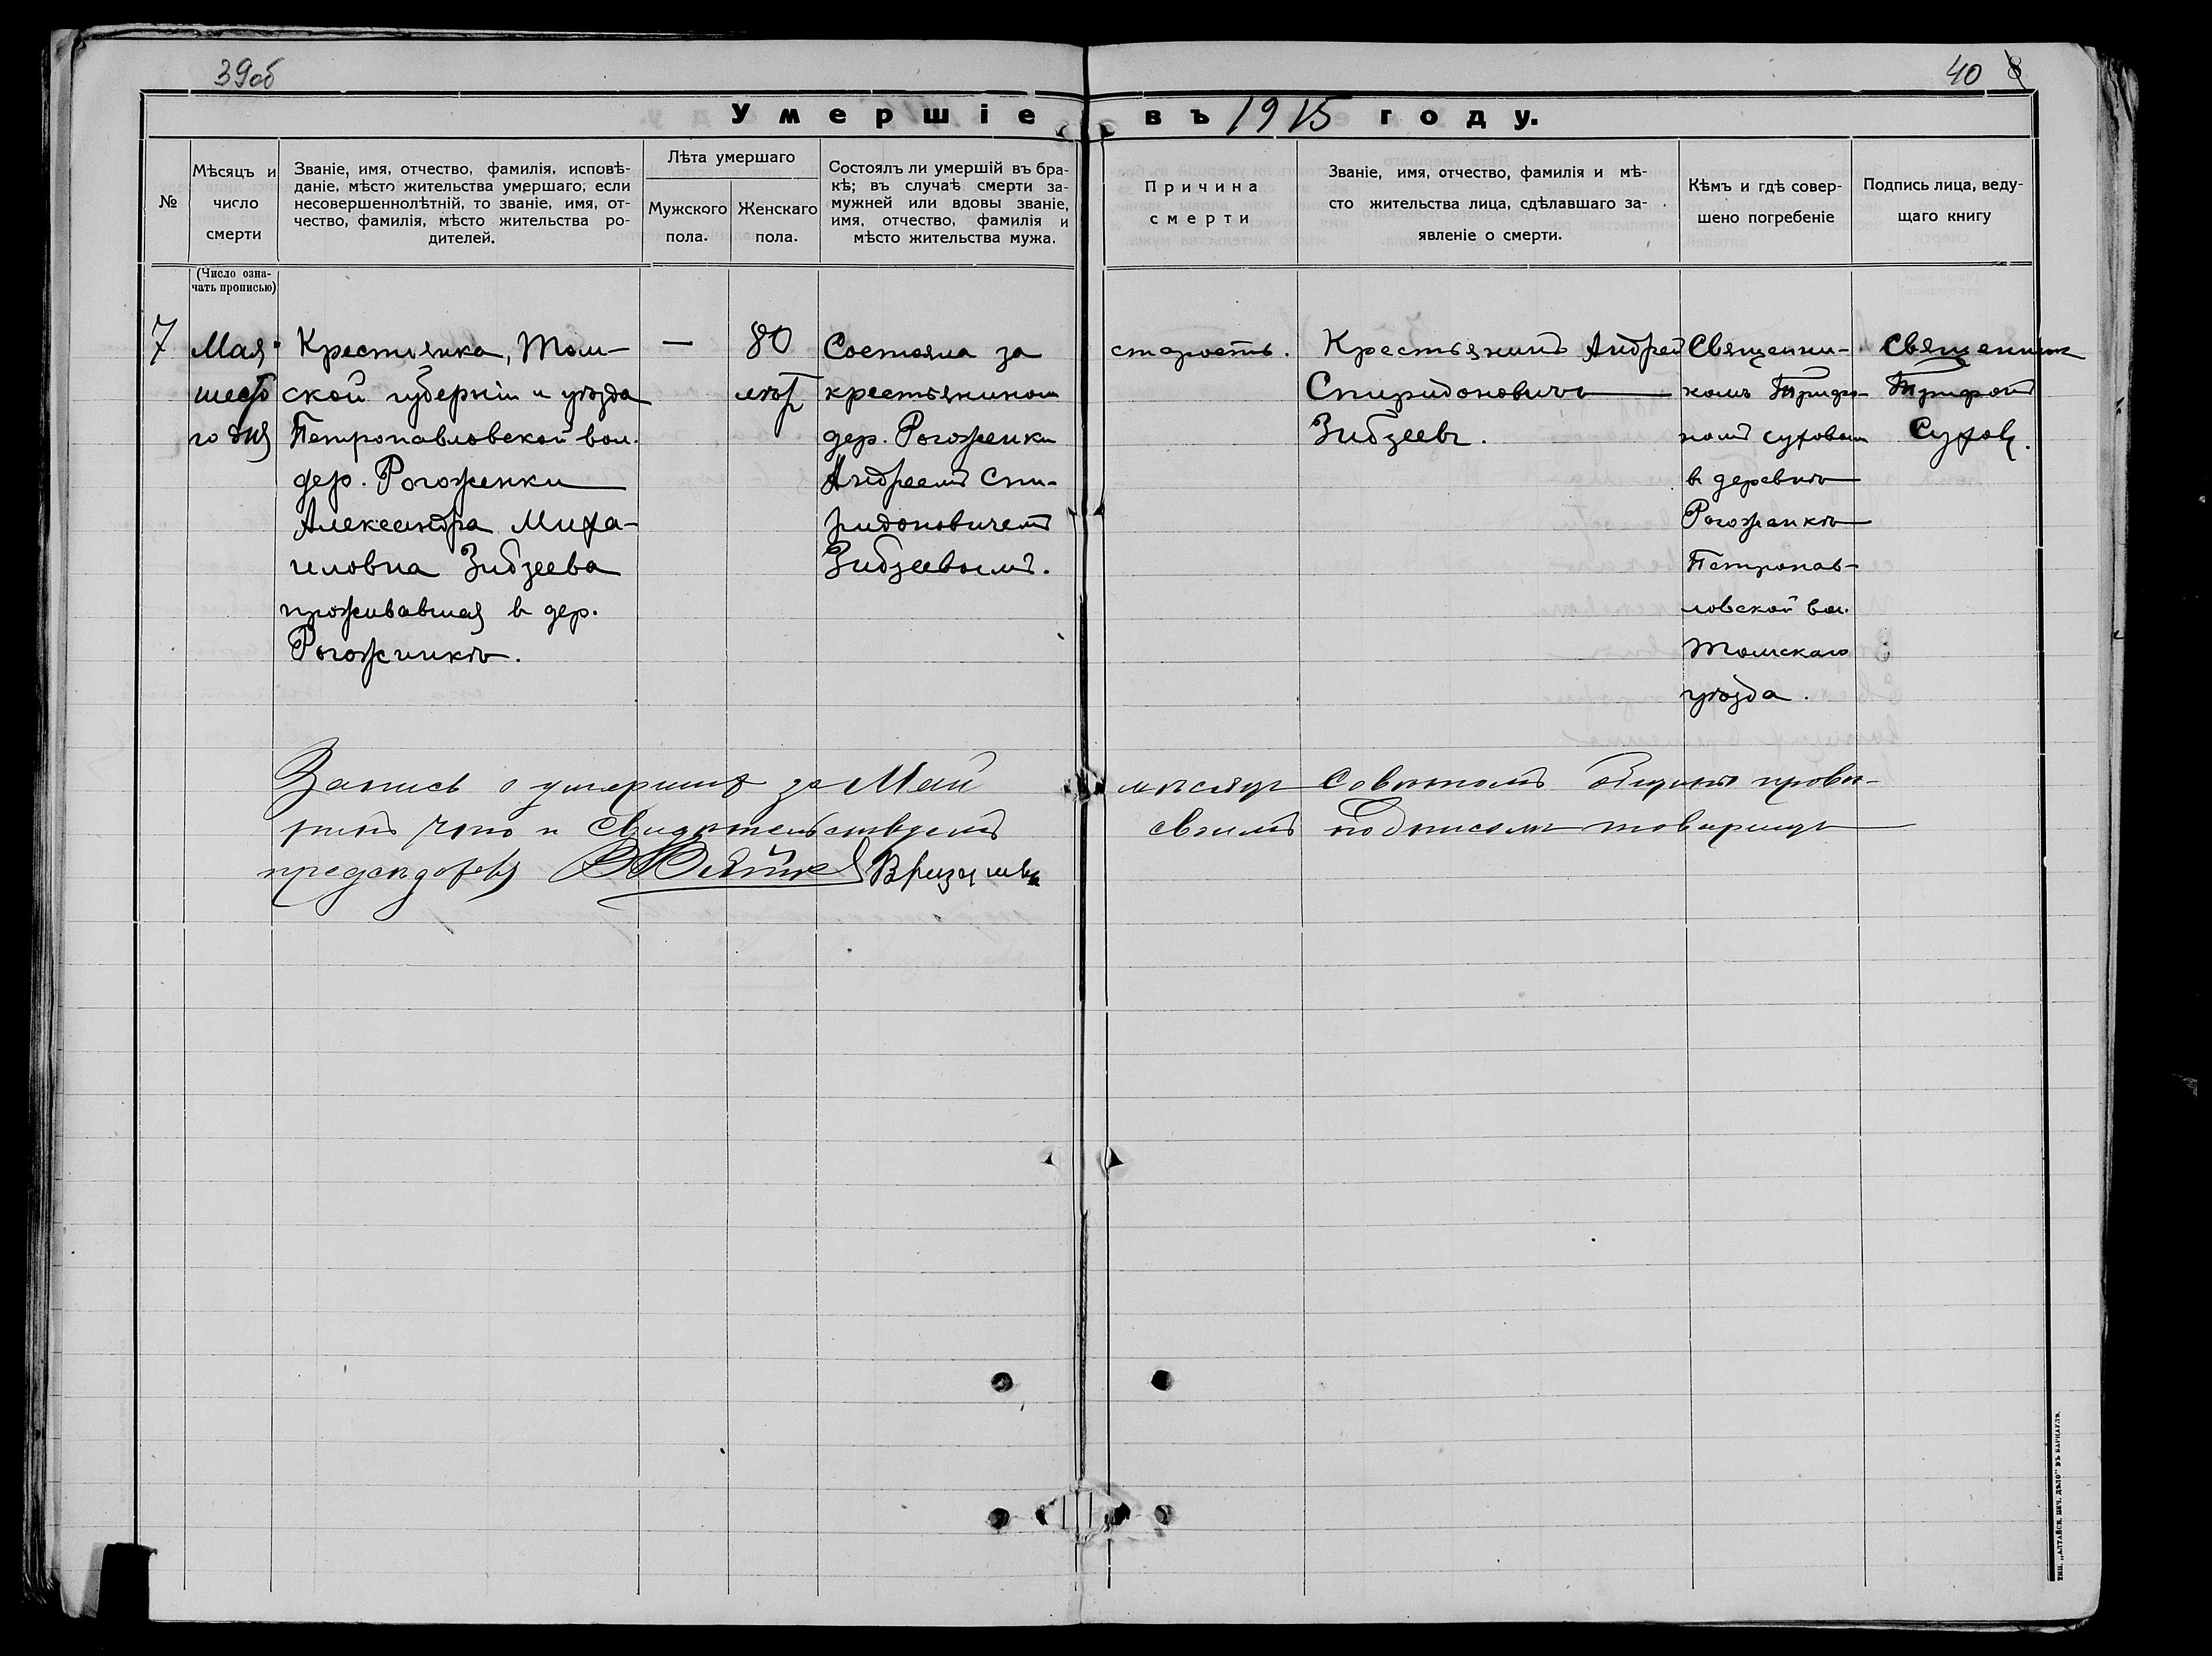 39об
40 8
Умершіе въ 1915 году.
№
Мѣсяцъ и
число
смерти
(Число озна-
чать прописью)
Званіе, имя, отчество, фамилія, исповѣ-
даніе, мѣсто жительства умершаго, если
несовершеннолѣтній, то званіе, имя, от-
чество, фамилія, мѣсто жительства ро-
дителей.
Лѣта умершаго
Мужского
пола.
Женскаго
пола.
Состоялъ ли умершій въ бра-
кѣ; въ случаѣ смерти за-
мужней или вдовы званіе,
имя, отчество, фамилія и
мѣсто жительства мужа.
Причина
смерти
Званіе, имя, отчество, фамилія и мѣ-
сто жительства лица, сдѣлавшаго за-
явленіе о смерти.
Кѣмъ и гдѣ совер-
шено погребеніе
Подпись лица, веду-
щаго книгу
7
Мая
шесто
го дня
Крестьянка, Том-
ской губерніи и уѣзда
Петропавловской вол.
дер. Рогоженки
Александра Миха-
иловна Зибзеева
проживавшая в дер.
Рогожинкѣ.
—
80
лѣт
Состояла за
крестьянином
дер. Рогоженки
Андреемъ Спи-
ридоновичемъ
Зибзеевымъ.
старость.
Крестьянинъ Андрей
Спиридоновичъ
Зибзеевъ.
Священни-
комъ Трифо-
номъ Суховым
в деревнѣ
Рогоженкѣ
Петропав-
ловской вол.
Томскаго
уѣзда.
Священник
Трифонъ
Сухов.
Запись о умерших за Май мѣсяцъ Совѣтомъ общины провѣ-
рить чего и свидѣтельствуемъ своимъ подписомъ товарищъ
предсѣдателя
ТИП. „АЛТАЙСК. ПЕЧ. ДѢЛО" ВЪ БАРНАУЛѢ.